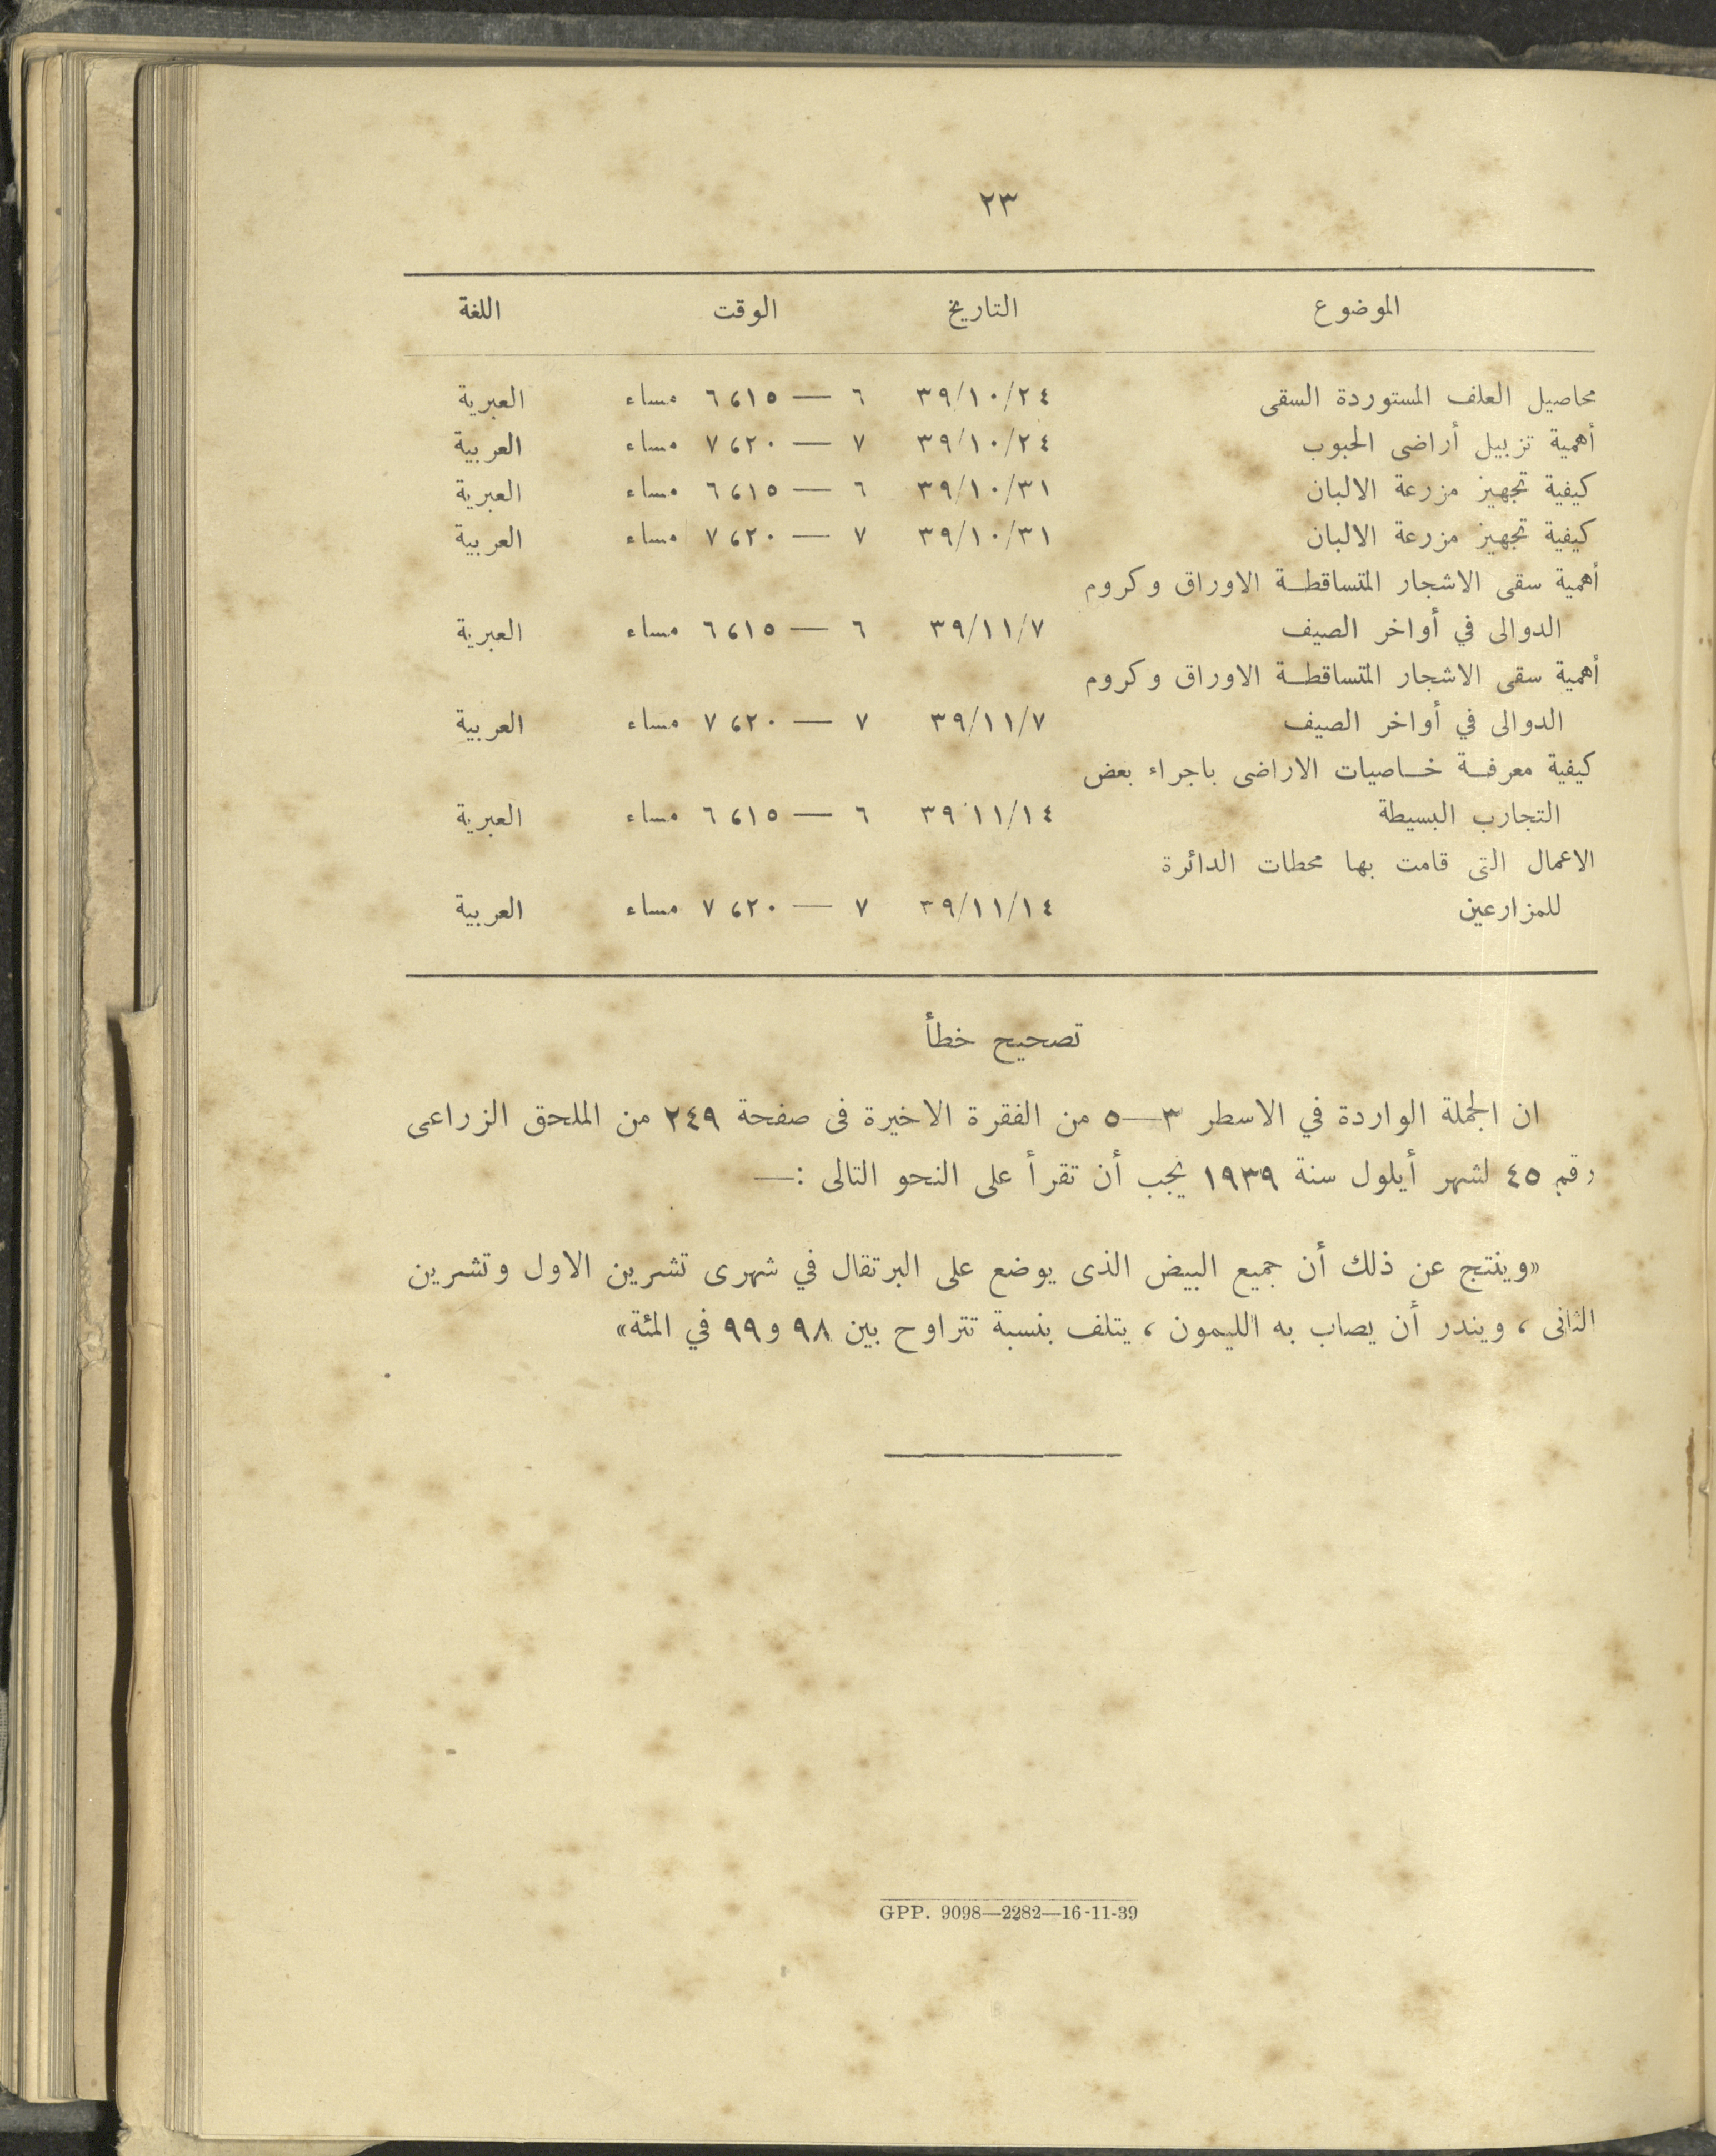 ٢٣
الموضوع التاريخ الوقت اللغة
محاصيل العلف المستوردة السقى ٣٩/١٠/٢٤ ٦ — ٦،١٥ مساء العبرية
أهمية تزبيل أراضى الحبوب ٣٩/١٠/٢٤ ٧ — ٧،٢٠ مساء العربية
كيفية تجهيز مزرعة الالبان ٣٩/١٠/٣١ ٦ — ٦،١٥ مساء العبرية
كيفية تجهيز مزرعة الالبان ٣٩/١٠/٣١ ٧ — ٧،٢٠ مساء العربية
أهمية سقى الاشجار المتساقطة الاوراق وكروم
الدوالى في أواخر الصيف ٣٩/١١/٧ ٦ — ٦،١٥ مساء العبرية
أهمية سقى الاشجار المتساقطة الاوراق وكروم
الدوالى في أواخر الصيف ٣٩/١١/٧ ٧ — ٧،٢٠ مساء العربية
كيفية معرفة خاصيات الاراضى باجراء بعض
التجارب البسيطة ٣٩/١١/١٤ ٦ — ٦،١٥ مساء العبرية
الاعمال التى قامت بها محطات الدائرة
للمزارعين ٣٩/١١/١٤ ٧ — ٧،٢٠ مساء العربية
تصحيح خطأ
ان الجملة الواردة في الاسطر ٣—٥ من الفقرة الاخيرة فى صفحة ٢٤٩ من الملحق الزراعى
رقم ٤٥ لشهر أيلول سنة ١٩٣٩ يجب أن تقرأ على النحو التالى :—
«وينتج عن ذلك أن جميع البيض الذى يوضع على البرتقال في شهرى تشرين الاول وتشرين
الثانى ، ويندر أن يصاب به الليمون ، يتلف بنسبة تتراوح بين ٩٨ و٩٩ في المئة»
GPP. 9098—2282—16-11-39